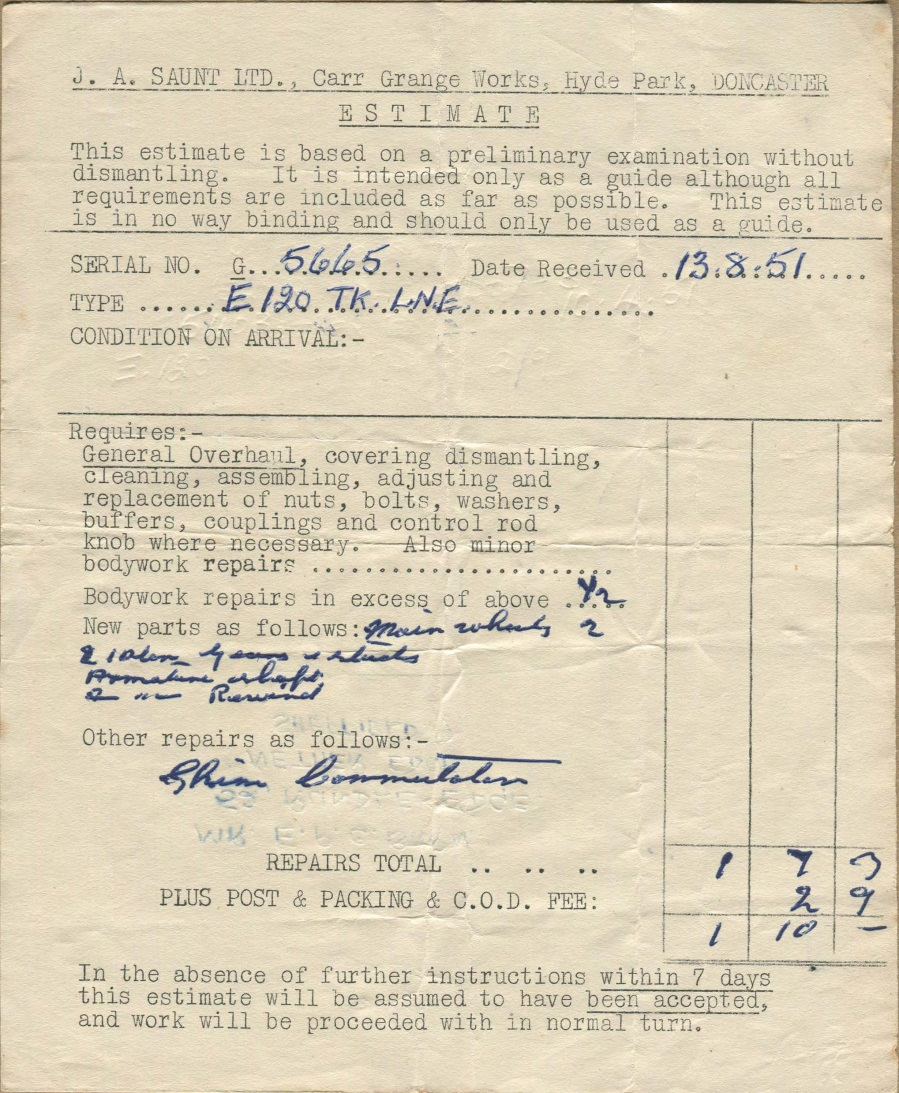 J. A. SAUNT LTD., Carr Grange Works, Hyde Park, DONCASTER
E S T I M A T E
This estimate is based on a preliminary examination without
dismantling. It is intended only as a guide although all
requirements are included as far as possible. This estimate
is in no way binding and should only be used as a guide.
SERIAL NO. G...5665...... Date Received .13.8.51.....
TYPE ......E.120 TK. L.N.E.................
CONDITION ON ARRIVAL:-
Requires:-
General Overhaul, covering dismantling,
cleaning, assembling, adjusting and
replacement of nuts, bolts, washers,
buffers, couplings and control rod
knob where necessary. Also minor
bodywork repairs .......................
Bodywork repairs in excess of above .....
New parts as follows: Main wheels 2
Armature shaft
Rewind
Other repairs as follows:-
Commutator
REPAIRS TOTAL .. .. .. 1 7 3
PLUS POST & PACKING & C.O.D. FEE: 2 9
1 10 -
In the absence of further instructions within 7 days
this estimate will be assumed to have been accepted,
and work will be proceeded with in normal turn.